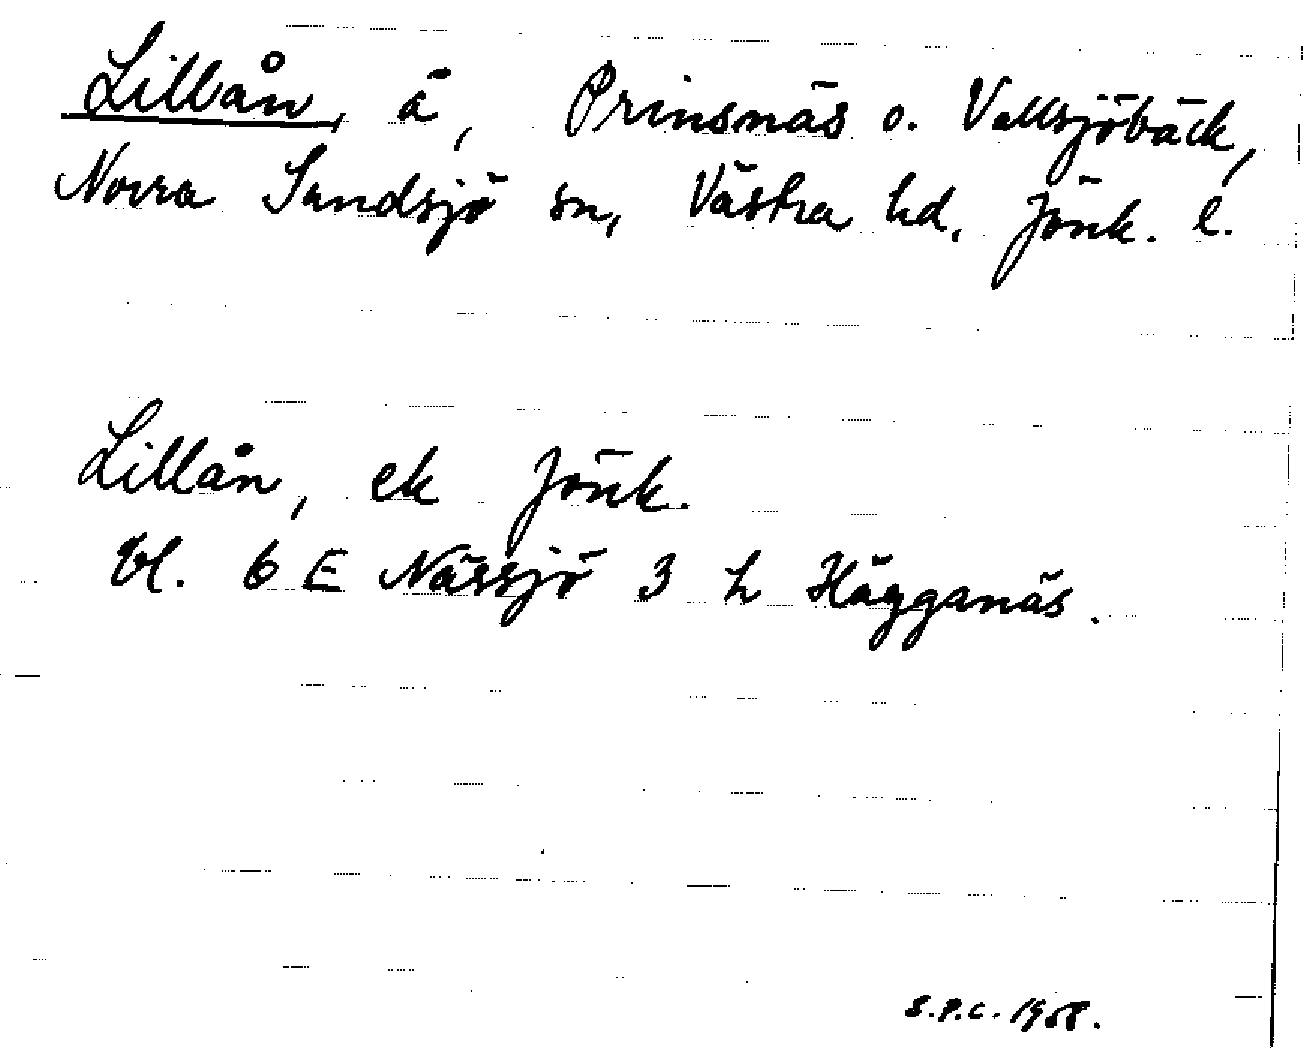 Lillån, å, Prinsnäs o. Vallsjöbäck,
Norra Sandsjö sn, Västra hd, Jönk. l.
Lillån, ek Jönk.
bl. 6 E Nässjö 3 h Hägganäs.
S.P.C. 1958.